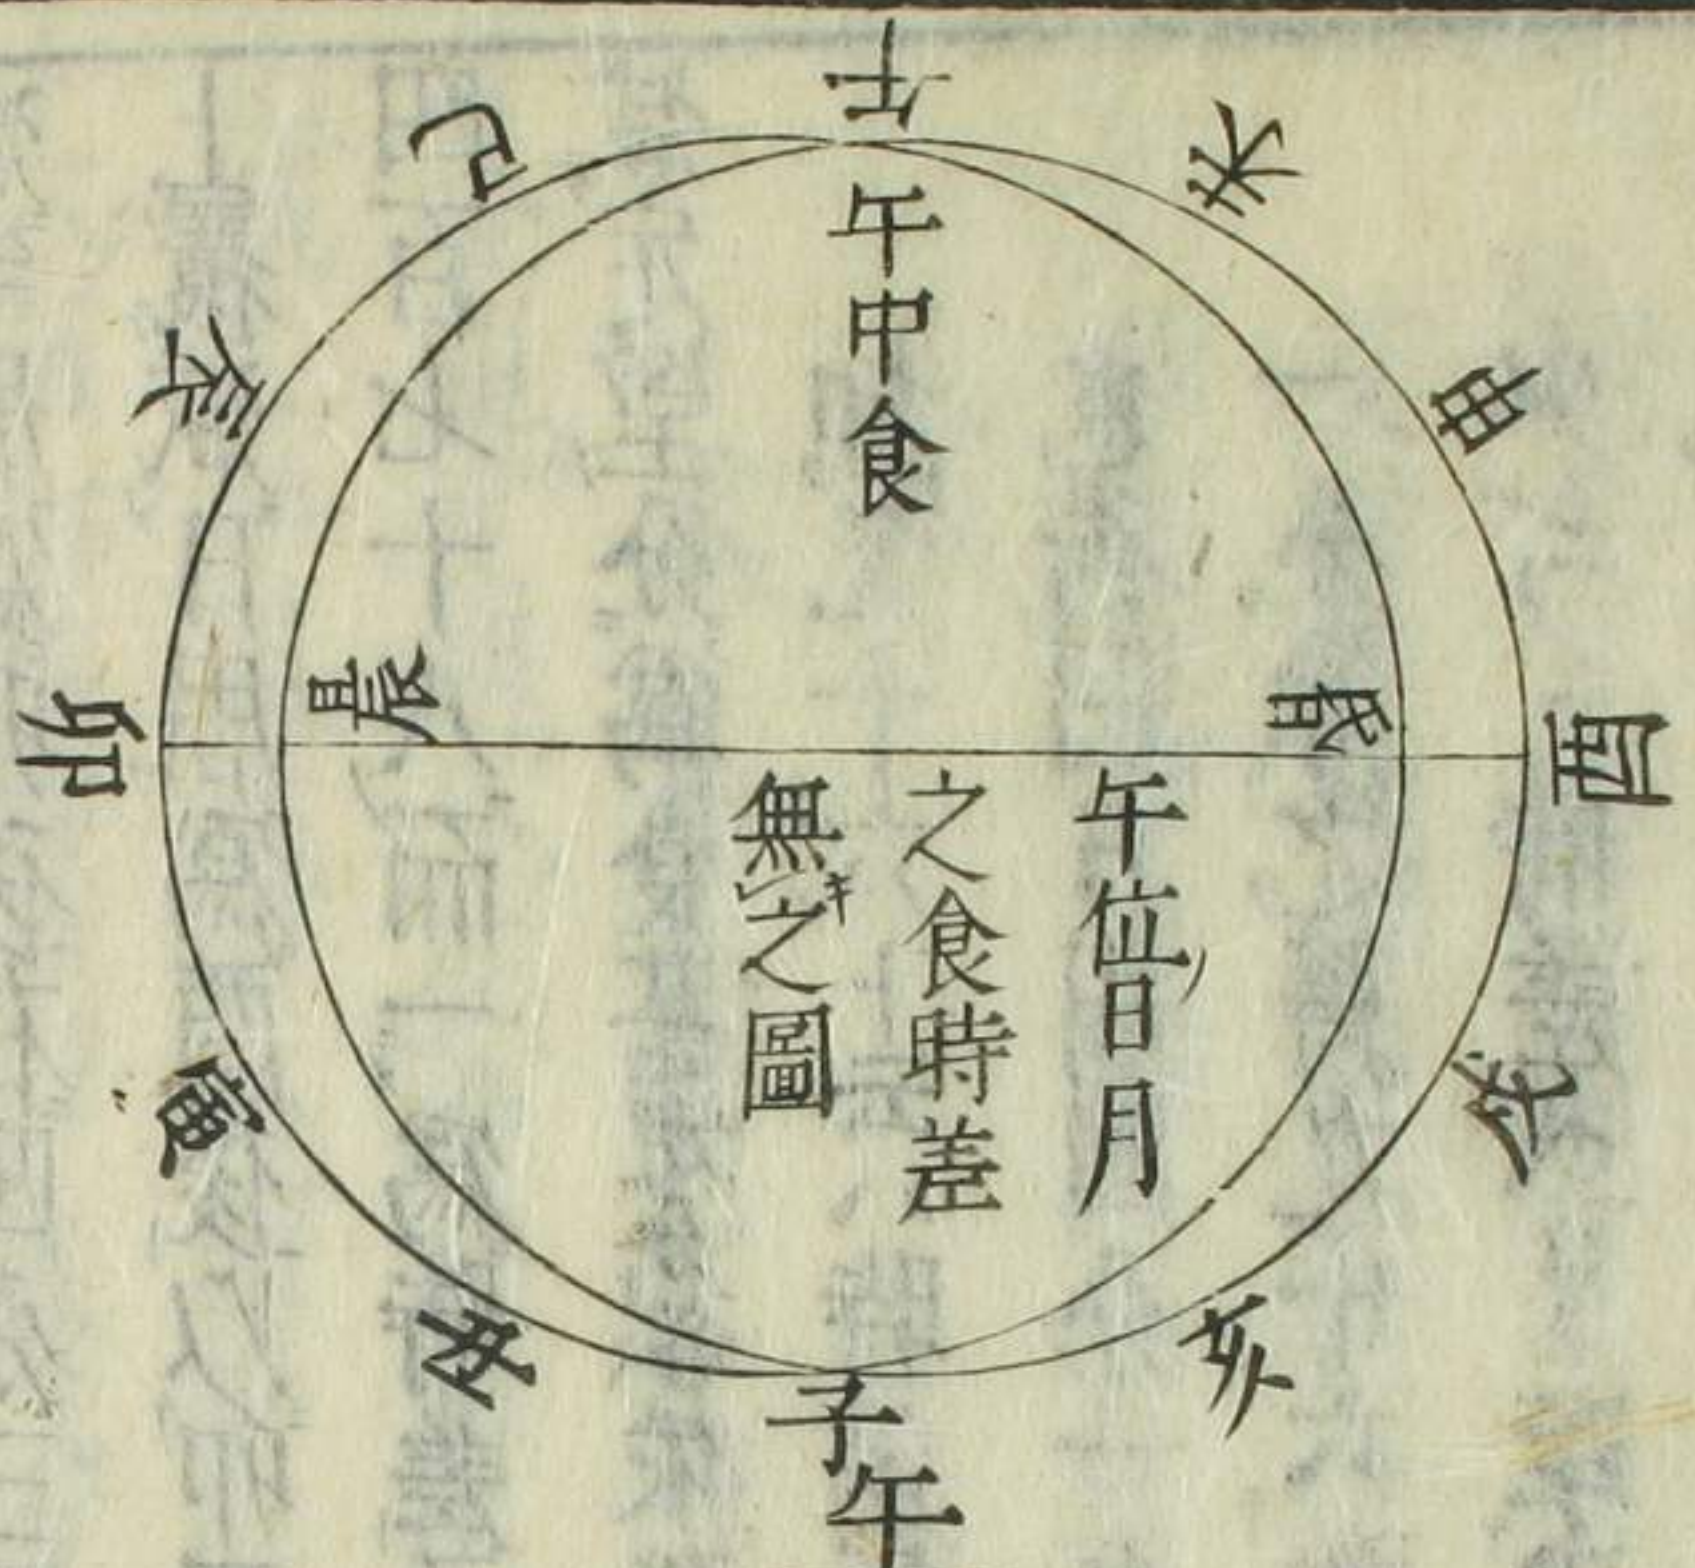 午
未
申
酉
戌
亥
子
丑
寅
卯
辰
巳
午中食
晨
昏
午位日月
之食時差
無キレ之圖
午